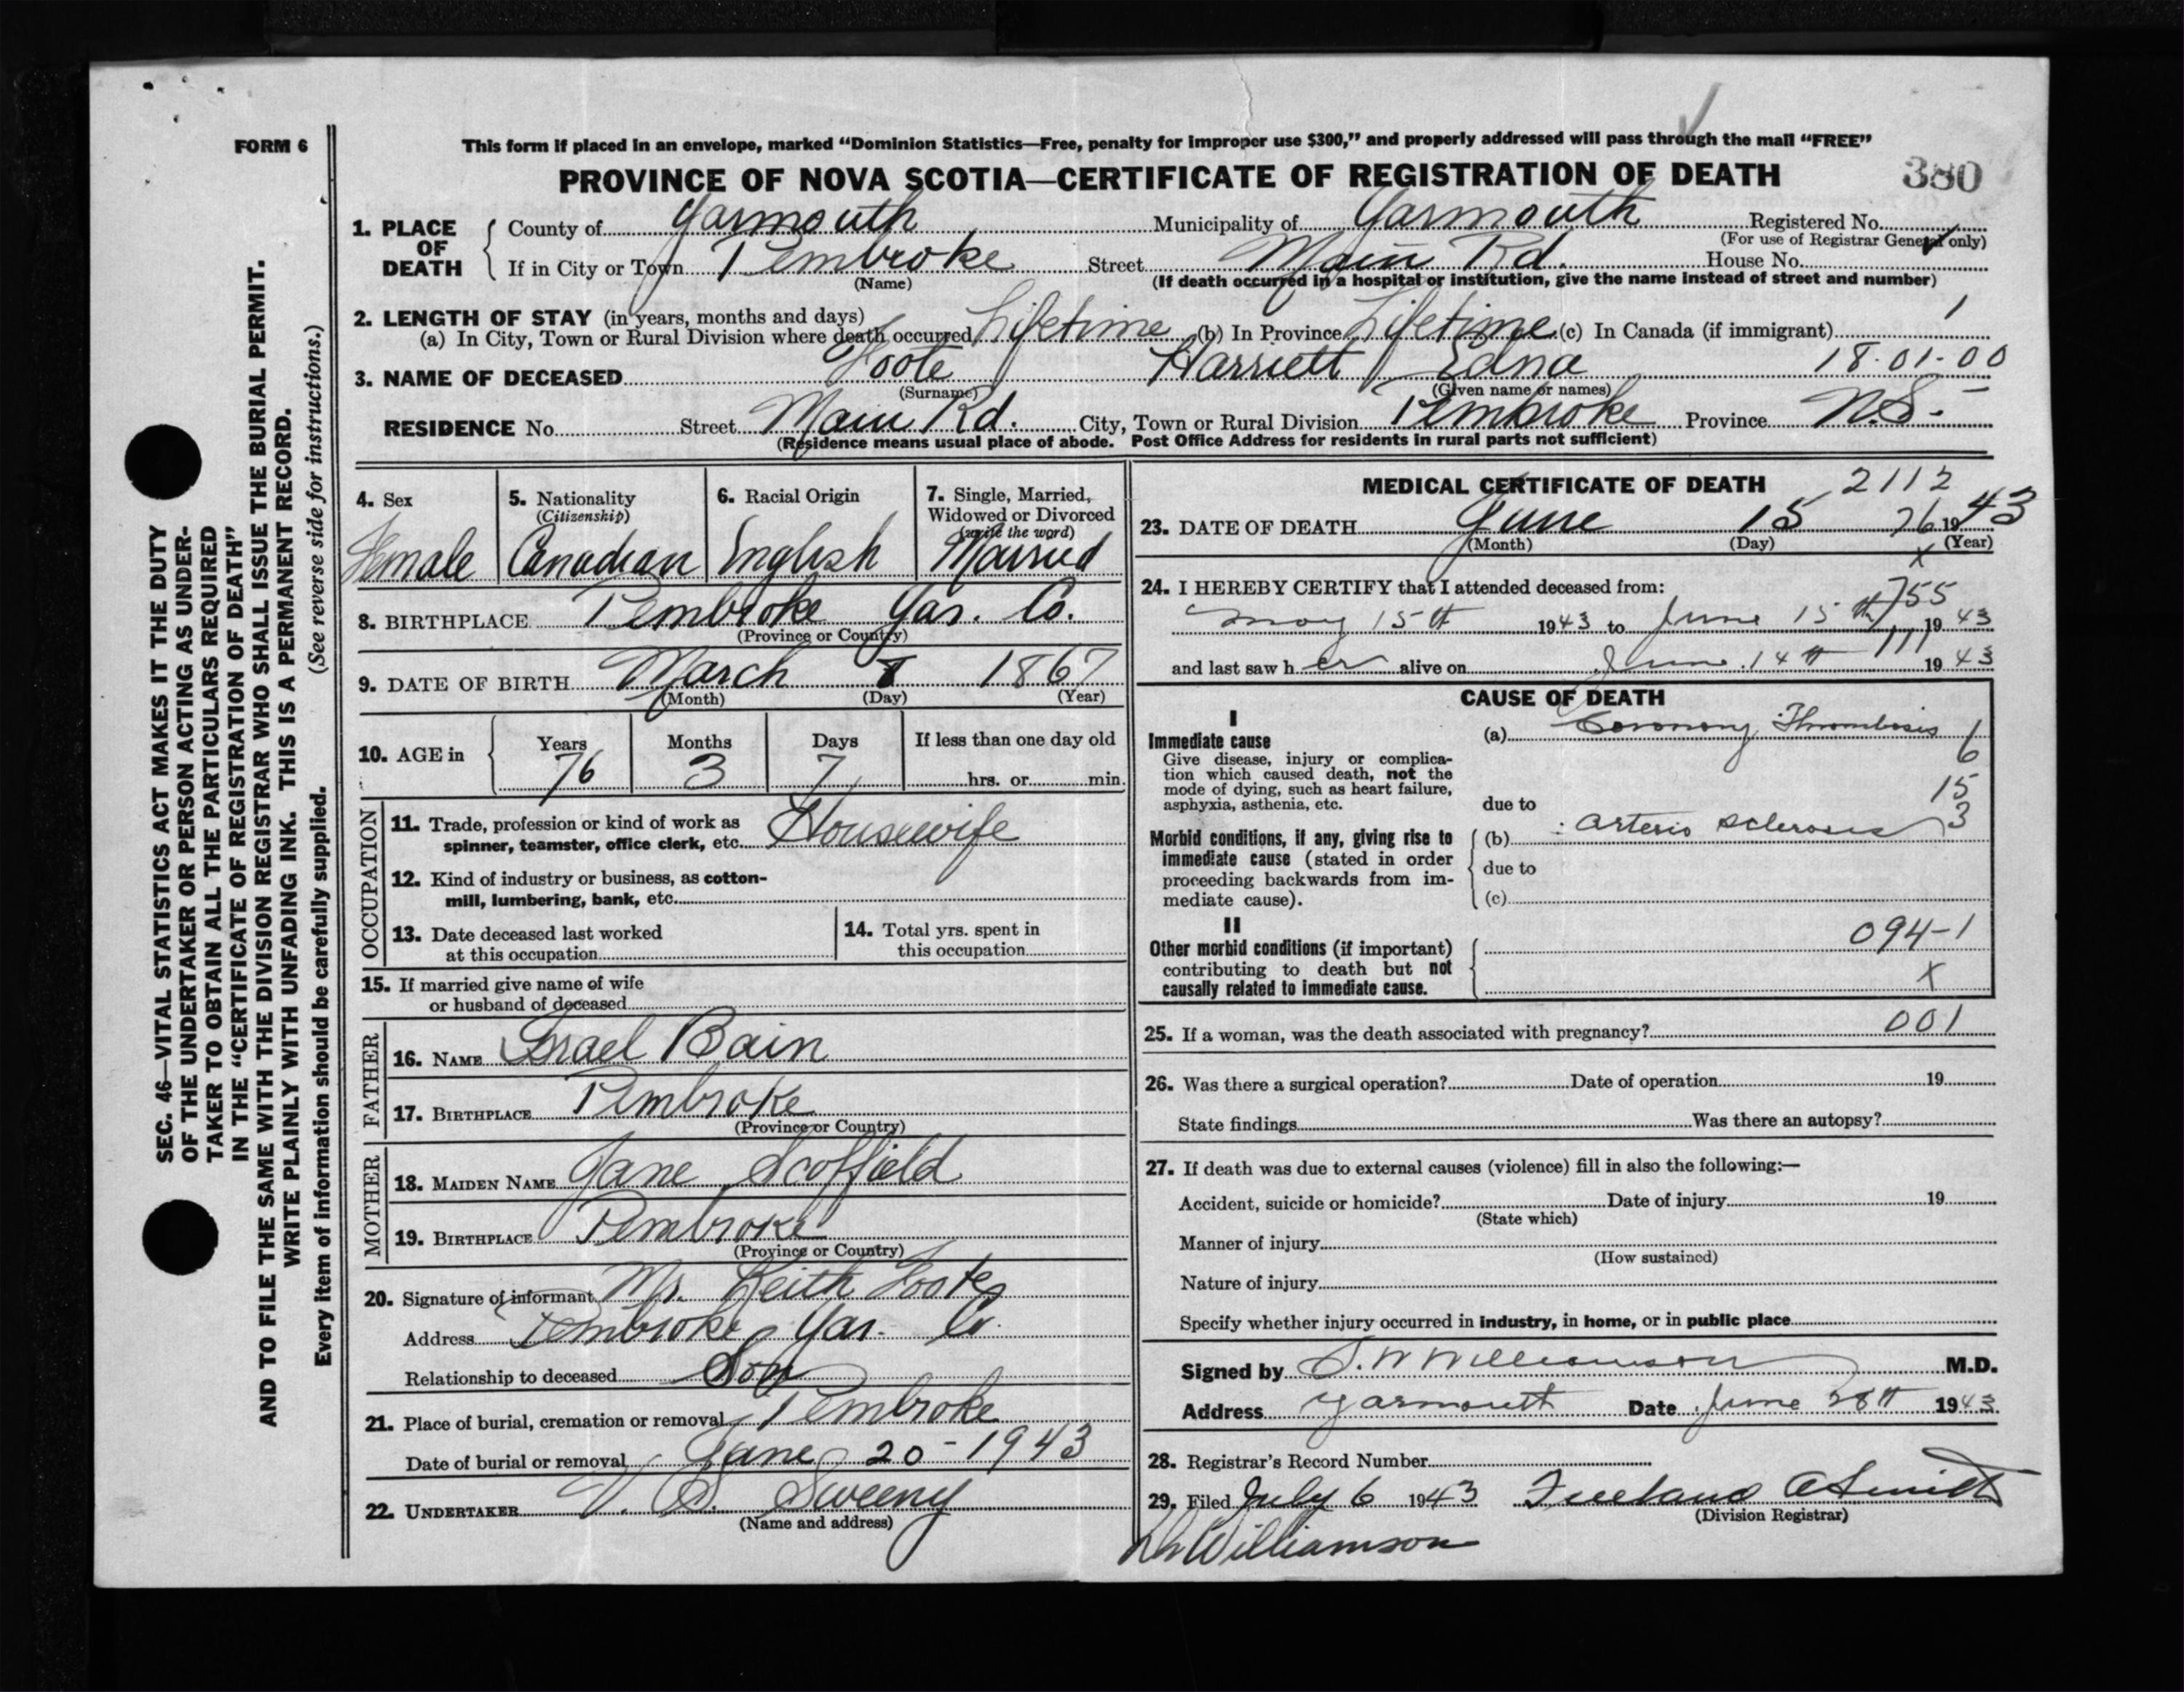 FORM 6
This form if placed in an envelope, marked “Dominion Statistics—Free, penalty for improper use $300,” and properly addressed will pass through the mail “FREE”
PROVINCE OF NOVA SCOTIA—CERTIFICATE OF REGISTRATION OF DEATH 380
1. PLACE OF DEATH County of Yarmouth Municipality of Yarmouth Registered No.
(For use of Registrar General only)
If in City or Town Pembroke Street Main Rd. House No.
(Name) (If death occurred in a hospital or institution, give the name instead of street and number)
2. LENGTH OF STAY (in years, months and days)
(a) In City, Town or Rural Division where death occurred Lifetime (b) In Province Lifetime (c) In Canada (if immigrant) 1
3. NAME OF DECEASED Foote Harriett Edna 18-01-00
(Surname) (Given name or names)
RESIDENCE No. Street Main Rd. City, Town or Rural Division Pembroke Province N.S.
(Residence means usual place of abode. Post Office Address for residents in rural parts not sufficient)
4. Sex
Female
5. Nationality
(Citizenship)
Canadian
6. Racial Origin
English
7. Single, Married,
Widowed or Divorced
(write the word)
Married
8. BIRTHPLACE Pembroke Yar. Co.
(Province or Country)
9. DATE OF BIRTH March 8 1867
(Month) (Day) (Year)
10. AGE in Years Months Days If less than one day old
76 3 7 hrs. or min.
OCCUPATION
11. Trade, profession or kind of work as
spinner, teamster, office clerk, etc. Housewife
12. Kind of industry or business, as cotton-
mill, lumbering, bank, etc.
13. Date deceased last worked
at this occupation
14. Total yrs. spent in
this occupation
15. If married give name of wife
or husband of deceased
FATHER
16. NAME Israel Bain
17. BIRTHPLACE Pembroke
(Province or Country)
MOTHER
18. MAIDEN NAME Jane Scoffield
19. BIRTHPLACE Pembroke
(Province or Country)
20. Signature of informant Mr. Keith Foote
Address Pembroke, Yar. Co.
Relationship to deceased Son
21. Place of burial, cremation or removal Pembroke
Date of burial or removal June 20-1943
22. UNDERTAKER V. S. Sweeny
(Name and address)
MEDICAL CERTIFICATE OF DEATH 2112
23. DATE OF DEATH June 15 76 1943
(Month) (Day) (Year)
x
24. I HEREBY CERTIFY that I attended deceased from:
755
May 15th 1943 to June 15th 1943
111
and last saw her alive on June 14th 1943
CAUSE OF DEATH
I
Immediate cause
Give disease, injury or complica-
tion which caused death, not the
mode of dying, such as heart failure,
asphyxia, asthenia, etc.
(a) Coronary Thrombosis
6
15
due to
3
Morbid conditions, if any, giving rise to
immediate cause (stated in order
proceeding backwards from im-
mediate cause).
(b) arterio sclerosis
due to
(c)
II
Other morbid conditions (if important)
contributing to death but not
causally related to immediate cause.
094-1
x
25. If a woman, was the death associated with pregnancy? 001
26. Was there a surgical operation? Date of operation 19
State findings Was there an autopsy?
27. If death was due to external causes (violence) fill in also the following:—
Accident, suicide or homicide? Date of injury 19
(State which)
Manner of injury
(How sustained)
Nature of injury
Specify whether injury occurred in industry, in home, or in public place
Signed by S. W Williamson M.D.
Address Yarmouth Date June 28th 1943
28. Registrar's Record Number
29. Filed July 6 1943 Freeland A Smith
(Division Registrar)
Dr Williamson
SEC. 46—VITAL STATISTICS ACT MAKES IT THE DUTY
OF THE UNDERTAKER OR PERSON ACTING AS UNDER-
TAKER TO OBTAIN ALL THE PARTICULARS REQUIRED
IN THE “CERTIFICATE OF REGISTRATION OF DEATH”
AND TO FILE THE SAME WITH THE DIVISION REGISTRAR WHO SHALL ISSUE THE BURIAL PERMIT.
WRITE PLAINLY WITH UNFADING INK. THIS IS A PERMANENT RECORD.
Every item of information should be carefully supplied. (See reverse side for instructions.)